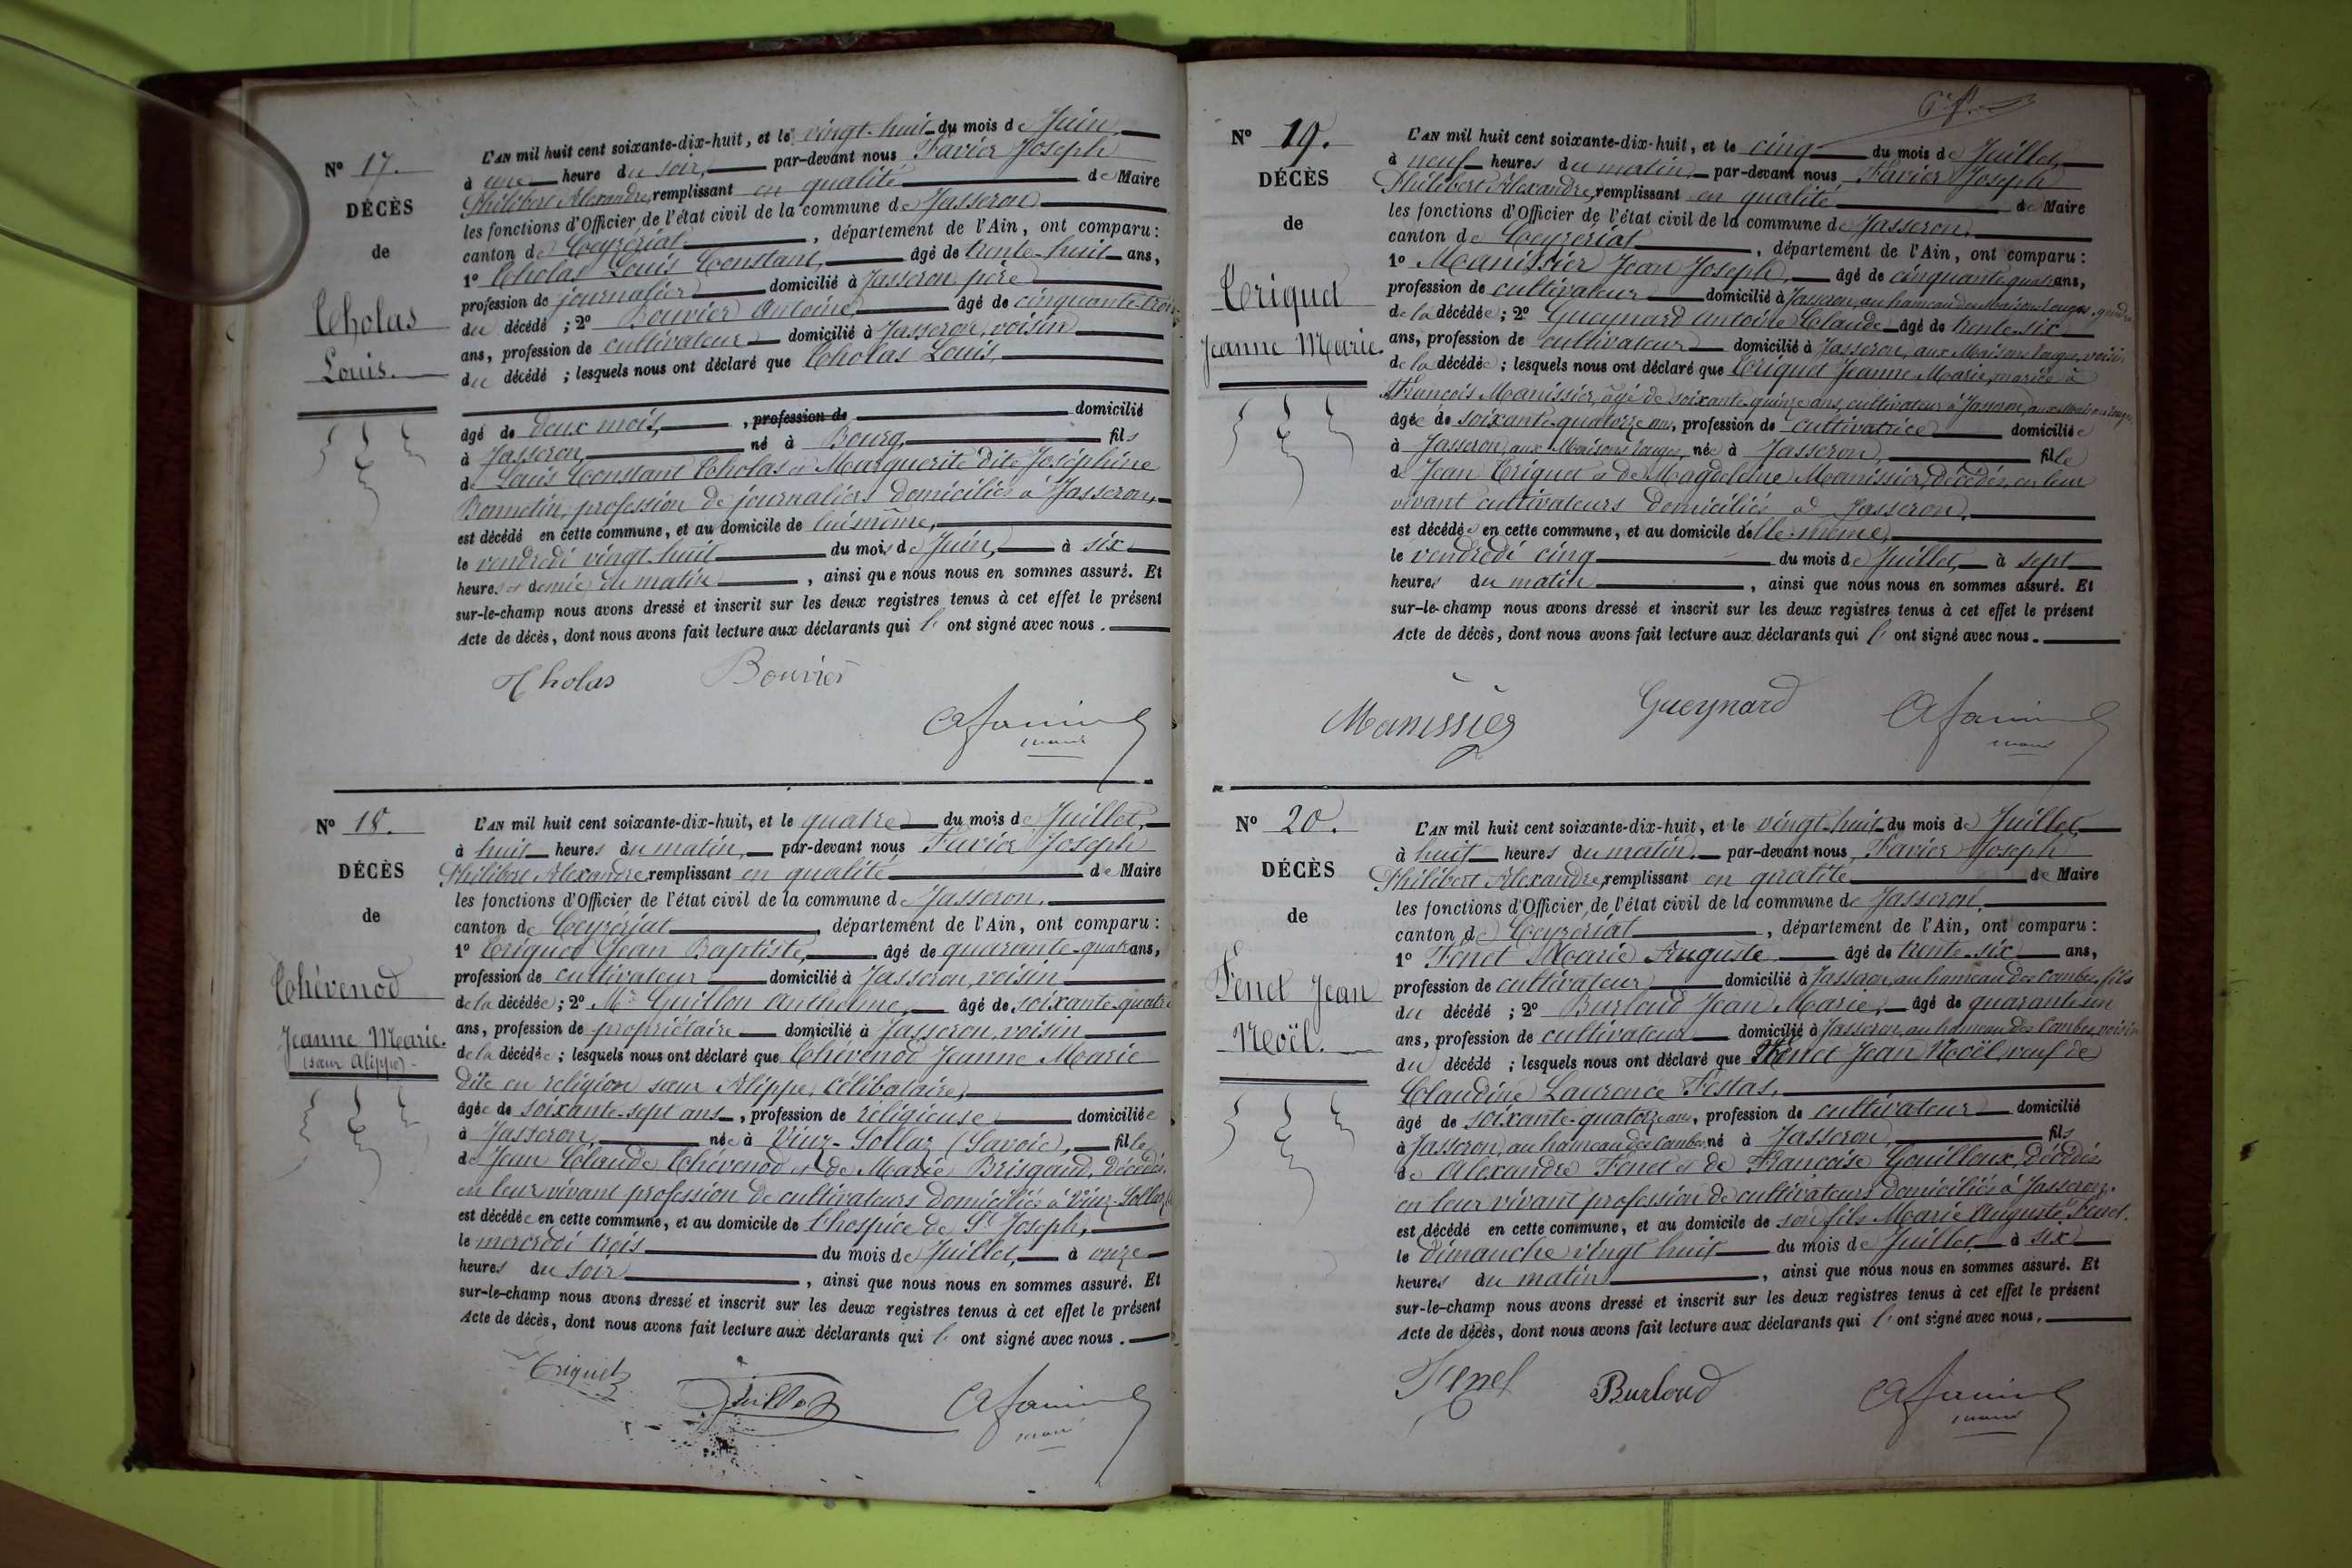 Nº 17.
DÉCÈS
de
Tholas
Louis.
L'AN mil huit cent soixante-dix-huit, et le vingt-huit du mois de Juin,
à une heure du soir, par-devant nous Favier Joseph
Philibert Alexandre, remplissant en qualité de Maire
les fonctions d'Officier de l'état civil de la commune de Jasseron
canton de Ceyzériat, département de l'Ain, ont comparu :
1º Tholas Louis Constant, âgé de trente-huit ans,
profession de journalier domicilié à Jasseron père
du décédé ; 2º Bouvier Antoine, âgé de cinquante-trois
ans, profession de cultivateur domicilié à Jasseron, voisin
du décédé ; lesquels nous ont déclaré que Tholas Louis,
âgé de deux mois, , profession de domicilié
à Jasseron, né à Bourg, fils
de Louis Constant Tholas et Marguerite dite Joséphine
profession de journaliers domiciliés à Jasseron,
est décédé en cette commune, et au domicile de lui-même,
le vendredi vingt-huit du mois de Juin, à six
heures et demie du matin, ainsi que nous nous en sommes assuré. Et
sur-le-champ nous avons dressé et inscrit sur les deux registres tenus à cet effet le présent
Acte de décès, dont nous avons fait lecture aux déclarants qui l' ont signé avec nous.
Tholas Bouvier
maire
Nº 18.
DÉCÈS
de
Thévenod
Jeanne Marie.
(sœur Alippe)
L'AN mil huit cent soixante-dix-huit, et le quatre du mois de Juillet,
à huit heures du matin, par-devant nous Favier Joseph
Philibert Alexandre, remplissant en qualité de Maire
les fonctions d'Officier de l'état civil de la commune de Jasseron,
canton de Ceyzériat, département de l'Ain, ont comparu :
1º Triquet Jean Baptiste, âgé de quarante-quatre ans,
profession de cultivateur domicilié à Jasseron, voisin
de la décédée ; 2º Mr Guillon Anthelme, âgé de soixante-quatre
ans, profession de propriétaire domicilié à Jasseron, voisin
de la décédée ; lesquels nous ont déclaré que Thévenod Jeanne Marie
dite en religion sœur Alippe, célibataire,
âgée de soixante-sept ans, profession de religieuse domiciliée
à Jasseron, née à Viuz-Sollaz (Savoie), fille
de Jean Claude Thévenod et de Marie Brisgand, décédés,
en leur vivant profession de cultivateurs domiciliés à Viuz-Sollaz
est décédée en cette commune, et au domicile de l'hospice de St Joseph,
le mercredi trois du mois de Juillet, à onze
heures du soir, ainsi que nous nous en sommes assuré. Et
sur-le-champ nous avons dressé et inscrit sur les deux registres tenus à cet effet le présent
Acte de décès, dont nous avons fait lecture aux déclarants qui l' ont signé avec nous.
Triquet Guillon
maire
Nº 19.
DÉCÈS
de
Triquet
Jeanne Marie.
L'AN mil huit cent soixante-dix-huit, et le cinq du mois de Juillet,
à neuf heures du matin, par-devant nous Favier Joseph
Philibert Alexandre, remplissant en qualité de Maire
les fonctions d'Officier de l'état civil de la commune de Jasseron,
canton de Ceyzériat, département de l'Ain, ont comparu :
1º Manissier Jean Joseph, âgé de cinquante quatre ans,
profession de cultivateur domicilié à Jasseron, au hameau des Maisons rouges, gendre
de la décédée ; 2º Gueynard Antoine Claude âgé de trente-six
ans, profession de cultivateur domicilié à Jasseron, aux Maisons rouges, voisin
de la décédée ; lesquels nous ont déclaré que Triquet Jeanne Marie, mariée à
François Manissier, âgé de soixante-quinze ans, cultivateur à Jasseron, aux Maisons rouges,
âgée de soixante-quatorze ans, profession de cultivatrice domiciliée
à Jasseron, aux Maisons rouges, née à Jasseron, fille
de Jean Triquet et de Magdeleine Manissier, décédés, en leur
vivant cultivateurs domiciliés à Jasseron,
est décédée en cette commune, et au domicile d'elle-même,
le vendredi cinq du mois de Juillet, à sept
heures du matin, ainsi que nous nous en sommes assuré. Et
sur-le-champ nous avons dressé et inscrit sur les deux registres tenus à cet effet le présent
Acte de décès, dont nous avons fait lecture aux déclarants qui l' ont signé avec nous.
Manissier Gueynard
maire
Nº 20.
DÉCÈS
de
Fenet Jean
Noël.
L'AN mil huit cent soixante-dix-huit, et le vingt-huit du mois de Juillet
à huit heures du matin, par-devant nous Favier Joseph
Philibert Alexandre, remplissant en qualité de Maire
les fonctions d'Officier de l'état civil de la commune de Jasseron,
canton de Ceyzériat, département de l'Ain, ont comparu :
1º Fenet Marie Auguste, âgé de trente-six ans,
profession de cultivateur domicilié à Jasseron, au hameau des Combes, fils
du décédé ; 2º Burloud Jean Marie, âgé de quarante-un
ans, profession de cultivateur domicilié à Jasseron, au hameau des Combes, voisin
du décédé ; lesquels nous ont déclaré que Fenet Jean Noël, veuf de
Claudine Laurence Festas,
âgé de soixante-quatorze ans, profession de cultivateur domicilié
à Jasseron, au hameau des Combes né à Jasseron, fils
de Alexandre Fenet et de Françoise Gouilloux, décédés,
en leur vivant profession de cultivateurs domiciliés à Jasseron.
est décédé en cette commune, et au domicile de son fils Marie Auguste Fenet.
le dimanche vingt huit du mois de Juillet, à six
heures du matin, ainsi que nous nous en sommes assuré. Et
sur-le-champ nous avons dressé et inscrit sur les deux registres tenus à cet effet le présent
Acte de décès, dont nous avons fait lecture aux déclarants qui l' ont signé avec nous.
Fenet Burloud
maire